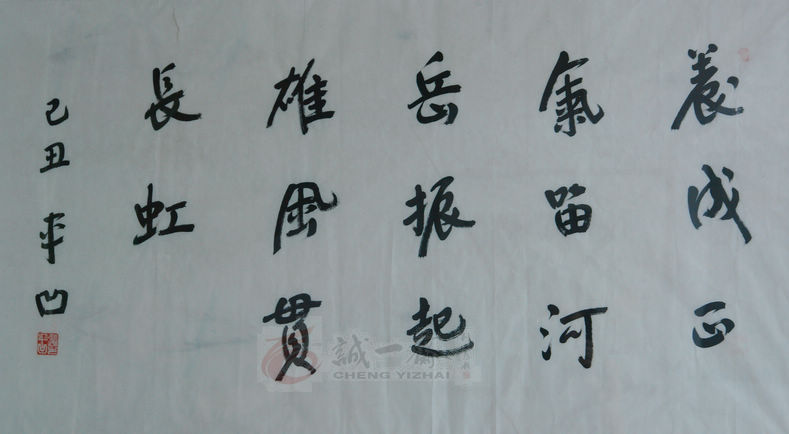 養成正
氣留河
岳振起
雄風貫
長虹
己丑 平凹
誠一齋
CHENG YIZHAI